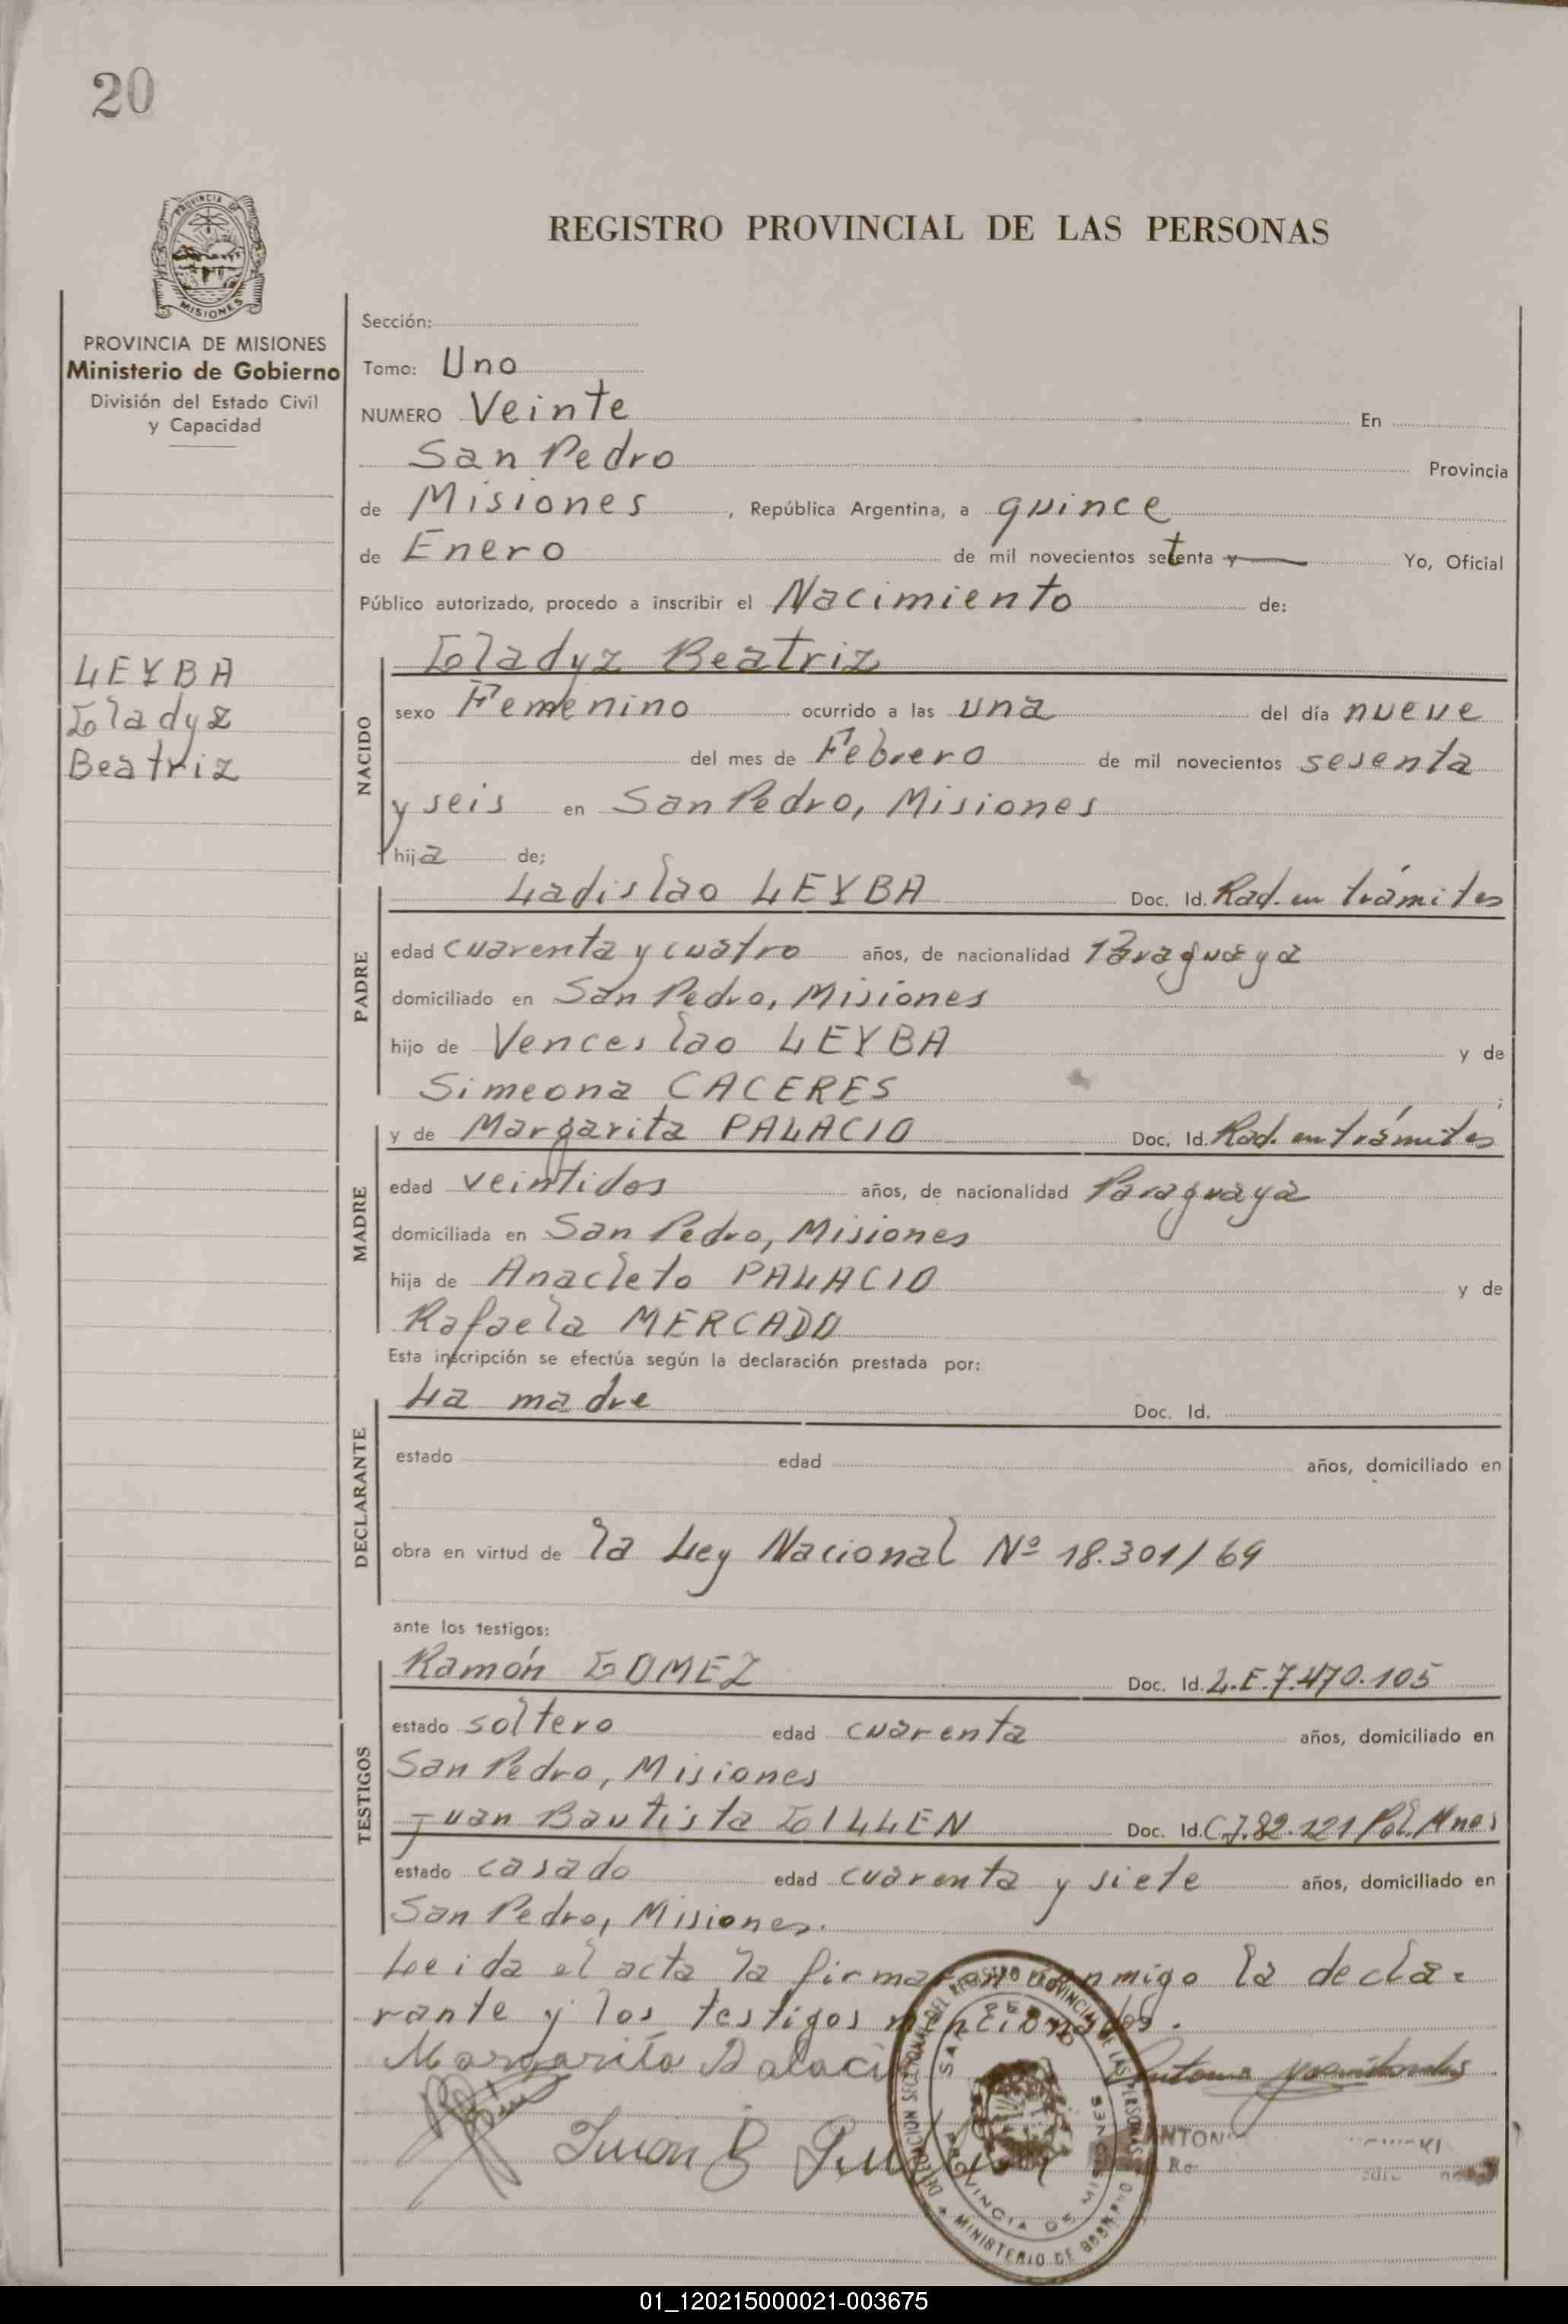 20
PROVINCIA DE
MISIONES
REGISTRO PROVINCIAL DE LAS PERSONAS
PROVINCIA DE MISIONES
Ministerio de Gobierno
División del Estado Civil
y Capacidad
LEYBA
Gladyz
Beatriz
Sección:
Tomo: Uno
NUMERO Veinte En
San Pedro Provincia
de Misiones, República Argentina, a quince
de Enero de mil novecientos setenta y — Yo, Oficial
Público autorizado, procedo a inscribir el Nacimiento de:
NACIDO
Gladyz Beatriz
sexo Femenino ocurrido a las una del día nueve
del mes de Febrero de mil novecientos sesenta
y seis en San Pedro, Misiones
hija de;
PADRE
Ladislao LEYBA Doc. Id. Rad. en trámites
edad cuarenta y cuatro años, de nacionalidad Paraguaya
domiciliado en San Pedro, Misiones
hijo de Venceslao LEYBA y de
Simeona CACERES ;
MADRE
y de Margarita PALACIO Doc. Id. Rad. en trámites
edad veintidos años, de nacionalidad Paraguaya
domiciliada en San Pedro, Misiones
hija de Anacleto PALACIO y de
Rafaela MERCADO
Esta inscripción se efectúa según la declaración prestada por:
DECLARANTE
La madre Doc. Id.
estado edad años, domiciliado en
obra en virtud de la Ley Nacional Nº 18.301/69
ante los testigos:
TESTIGOS
Ramón GOMEZ Doc. Id. L.E.7.470.105
estado soltero edad cuarenta años, domiciliado en
San Pedro, Misiones
Juan Bautista GILLEN Doc. Id. C.I.82.121 Pol. Mnes
estado casado edad cuarenta y siete años, domiciliado en
San Pedro, Misiones.
Leida el acta la firmaron conmigo la decla-
rante y los testigos mencionados.
Margarita Palacio
Juan B
DELEGACION SECCIONAL DEL REGISTRO PROVINCIAL DE LAS PERSONAS
MINISTERIO DE GOBIERNO
SAN PEDRO
PROVINCIA DE MISIONES
01_120215000021-003675